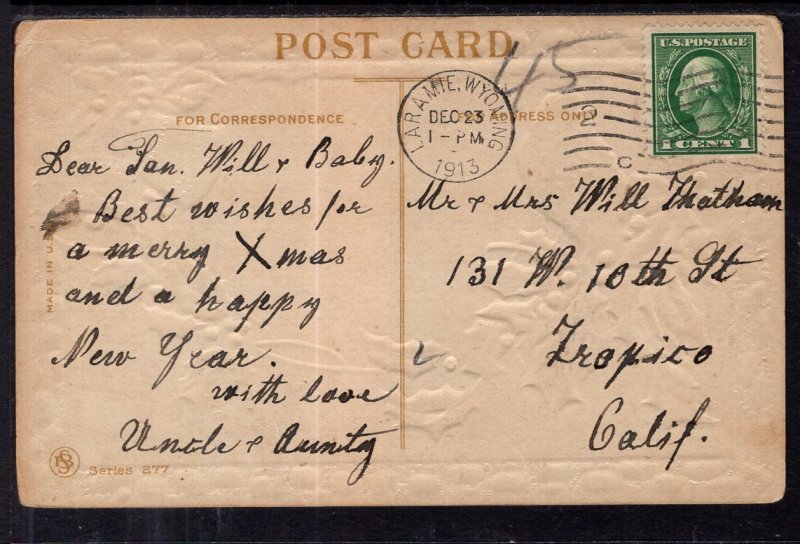 POST CARD
45
FOR CORRESPONDENCE
FOR ADDRESS ONLY
LARAMIE, WYOMING
DEC 23
1-PM
1913
U.S. POSTAGE
1 CENT 1
Dear Jan. Will & Baby.
Best wishes for
a merry Xmas
and a happy
New Year.
with love
Uncle & Aunty
Mr & Mrs Will Thatham
131 W. 10th St
Tropico
Calif.
MADE IN U.S.
Series 277